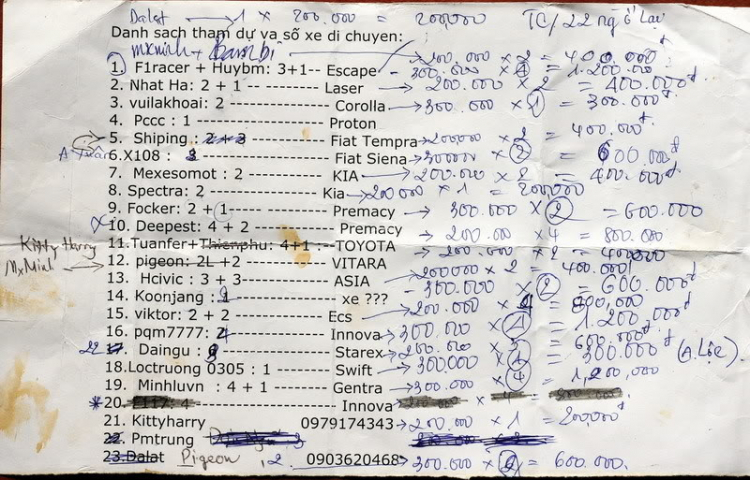 Dalat 1 x 200.000 = 200,000 TC/22 ng ở lại
Danh sach tham dự va số xe di chuyen:
mxminh + Bambi 200.000 x 2 = 400.000đ
1. F1racer + Huybm: 3+1-- Escape - 300.000 x 4 = 1.200.000
2. Nhat Ha: 2 + 1 -- --------- Laser 200.000 x 2 = 400.000đ
3. vuilakhoai: 2 --------------- Corolla 300.000 x 1 = 300.000đ
4. Pccc : 1 ------------------- Proton
5. Shiping : 2 + 3 ------------ Fiat Tempra 200,000 x 2 = 400.000đ
A Tuân 6.X108 : 3 ------------------ Fiat Siena 300000 x 2 = 600.000đ
7. Mexesomot : 2 -------------- KIA 200.000 x 2 = 400.000đ
8. Spectra: 2 ----------------- Kia 200 000 x 1 = 200,000
9. Focker: 2 + 1 --------------- Premacy 300.000 x 2 = 600.000
x 10. Deepest: 4 + 2 ------------ Premacy 200.000 x 4 = 800.000
KittyHarry 11.Tuanfer+Thienphu: 4+1 :--TOYOTA 200.000 x 2 = 400000
12. pigeon: 2L +2 ------------- VITARA 200000 x 2 = 400.000
13. Hcivic : 3 + 3 -------------- ASIA - 300.000 x 2 = 600.000đ
14. Koonjang : ---------------- xe ??? 200.000 x 4 = 800,000
15. viktor: 2 + 2 -------------- Ecs 300.000 x 4 = 1.200.000đ
16. pqm7777: ---------------- Innova
22 17. Daingu : ----------------- Starex 300.000 x 1 = 300.000đ (A.Lộc)
18.Loctruong 0305 : 1 --------- Swift 300.000 x 4 = 1,200,000
19. Minhluvn : 4 + 1 ---------- Gentra
*20. E117: 4 ------------------- Innova
21. Kittyharry 0979174343 200.000 x 1 = 200,000đ
22. Pmtrung
23.Dalat Pigeon , 2. 0903620468 300.000 x 2 = 600.000.